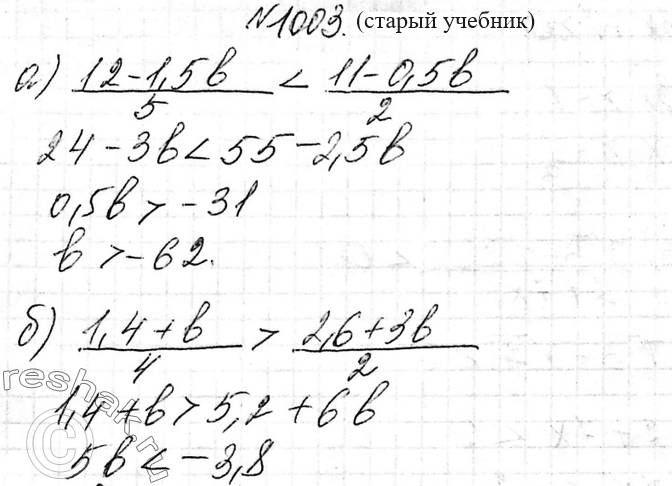 №1003. (старый учебник)
а) (12-1,5в)/5 < (11-0,5в)/2
24-3в<55-2,5в
0,5в>-31
в>-62.
б) (1,4+в)/4 > (2,6+3в)/2
1,4+в>5,2+6в
5в<-3,8
© reshak.ru